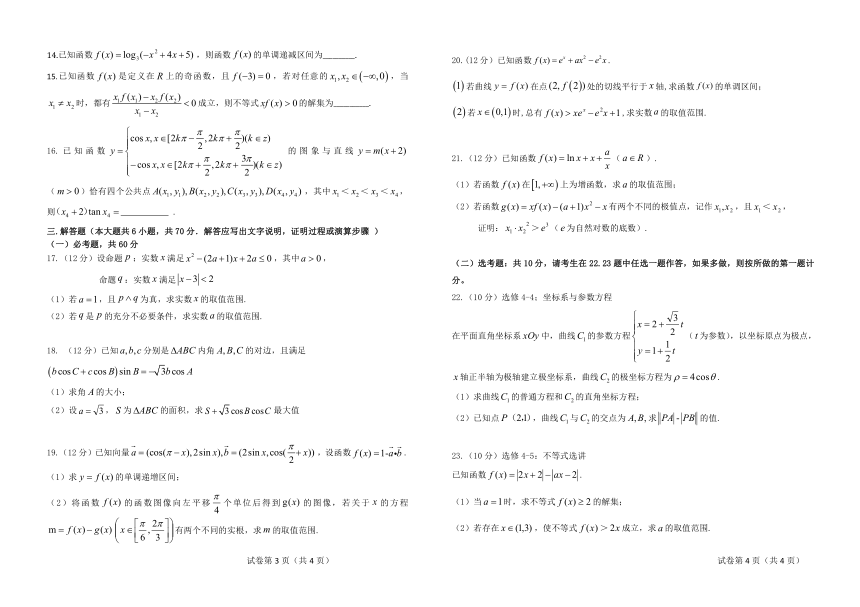 14.已知函数 f(x)=log₃(−x²+4x+5)，则函数 f(x) 的单调递减区间为_______.
15.已知函数 f(x) 是定义在 R 上的奇函数，且 f(−3)=0，若对任意的 x₁,x₂∈(−∞,0)，当
x₁≠x₂时，都有 (x₁f(x₁)−x₂f(x₂))/(x₁−x₂)<0成立，则不等式xf(x)>0的解集为________.
16.已知函数 y={cos x,x∈[2kπ−π/2,2kπ+π/2)(k∈z) −cos x,x∈[2kπ+π/2,2kπ+3π/2)(k∈z) 的图象与直线 y=m(x+2)
（m>0）恰有四个公共点 A(x₁,y₁),B(x₂,y₂),C(x₃,y₃),D(x₄,y₄)，其中x₁＜x₂＜x₃＜x₄，
则(x₄+2)tan x₄=__________ .
三.解答题（本大题共6小题，共70分．解答应写出文字说明，证明过程或演算步骤 ）
（一）必考题，共60分
17.（12分）设命题p：实数x满足x²−(2a+1)x+2a≤0，其中a>0，
命题q：实数x满足|x−3|<2
（1）若a=1，且p∧q为真，求实数x的取值范围.
（2）若q是p的充分不必要条件，求实数a的取值范围.
18. （12分）已知a,b,c分别是ΔABC内角A,B,C的对边，且满足
(b cos C+c cos B)sin B=−√3b cos A
（1）求角A的大小；
（2）设a=√3，S为ΔABC的面积，求S+√3cos B cos C最大值
19.（12分）已知向量a⃗=(cos(π−x),2sin x),b⃗=(2sin x,cos(π/2+x))，设函数f(x)=1-a⃗•b⃗.
（1）求y=f(x)的单调递增区间；
（2）将函数f(x)的函数图像向左平移π/4个单位后得到g(x)的图像，若关于x的方程
m=f(x)−g(x)(x∈[π/6,2π/3])有两个不同的实根，求m的取值范围.
试卷第3页（共4页）
20.（12分）已知函数f(x)=eˣ+ax²−e²x.
(1)若曲线y=f(x)在点(2,f(2))处的切线平行于x轴,求函数f(x)的单调区间;
(2)若x∈(0,1)时,总有f(x)>xeˣ−e²x+1,求实数a的取值范围.
21.（12分）已知函数f(x)=ln x+x+a/x（a∈R）.
（1）若函数f(x)在[1,+∞)上为增函数，求a的取值范围；
（2）若函数g(x)=xf(x)−(a+1)x²−x有两个不同的极值点，记作x₁,x₂，且x₁＜x₂，
证明：x₁·x₂²＞e³（e为自然对数的底数）.
（二）选考题：共10分，请考生在22.23题中任选一题作答，如果多做，则按所做的第一题计
分。
22.（10分）选修4-4：坐标系与参数方程
在平面直角坐标系xOy中，曲线C₁的参数方程{x=2+√3/2 t y=1+1/2 t（t为参数），以坐标原点为极点，
x轴正半轴为极轴建立极坐标系，曲线C₂的极坐标方程为ρ=4cosθ.
（1）求曲线C₁的普通方程和C₂的直角坐标方程；
（2）已知点P（2,1），曲线C₁与C₂的交点为A,B,求||PA|-|PB||的值.
23.（10分）选修4-5：不等式选讲
已知函数f(x)=|2x+2|−|ax−2|.
（1）当a=1时，求不等式f(x)≥2的解集；
（2）若存在x∈(1,3)，使不等式f(x)＞2x成立，求a的取值范围.
试卷第4页（共4页）